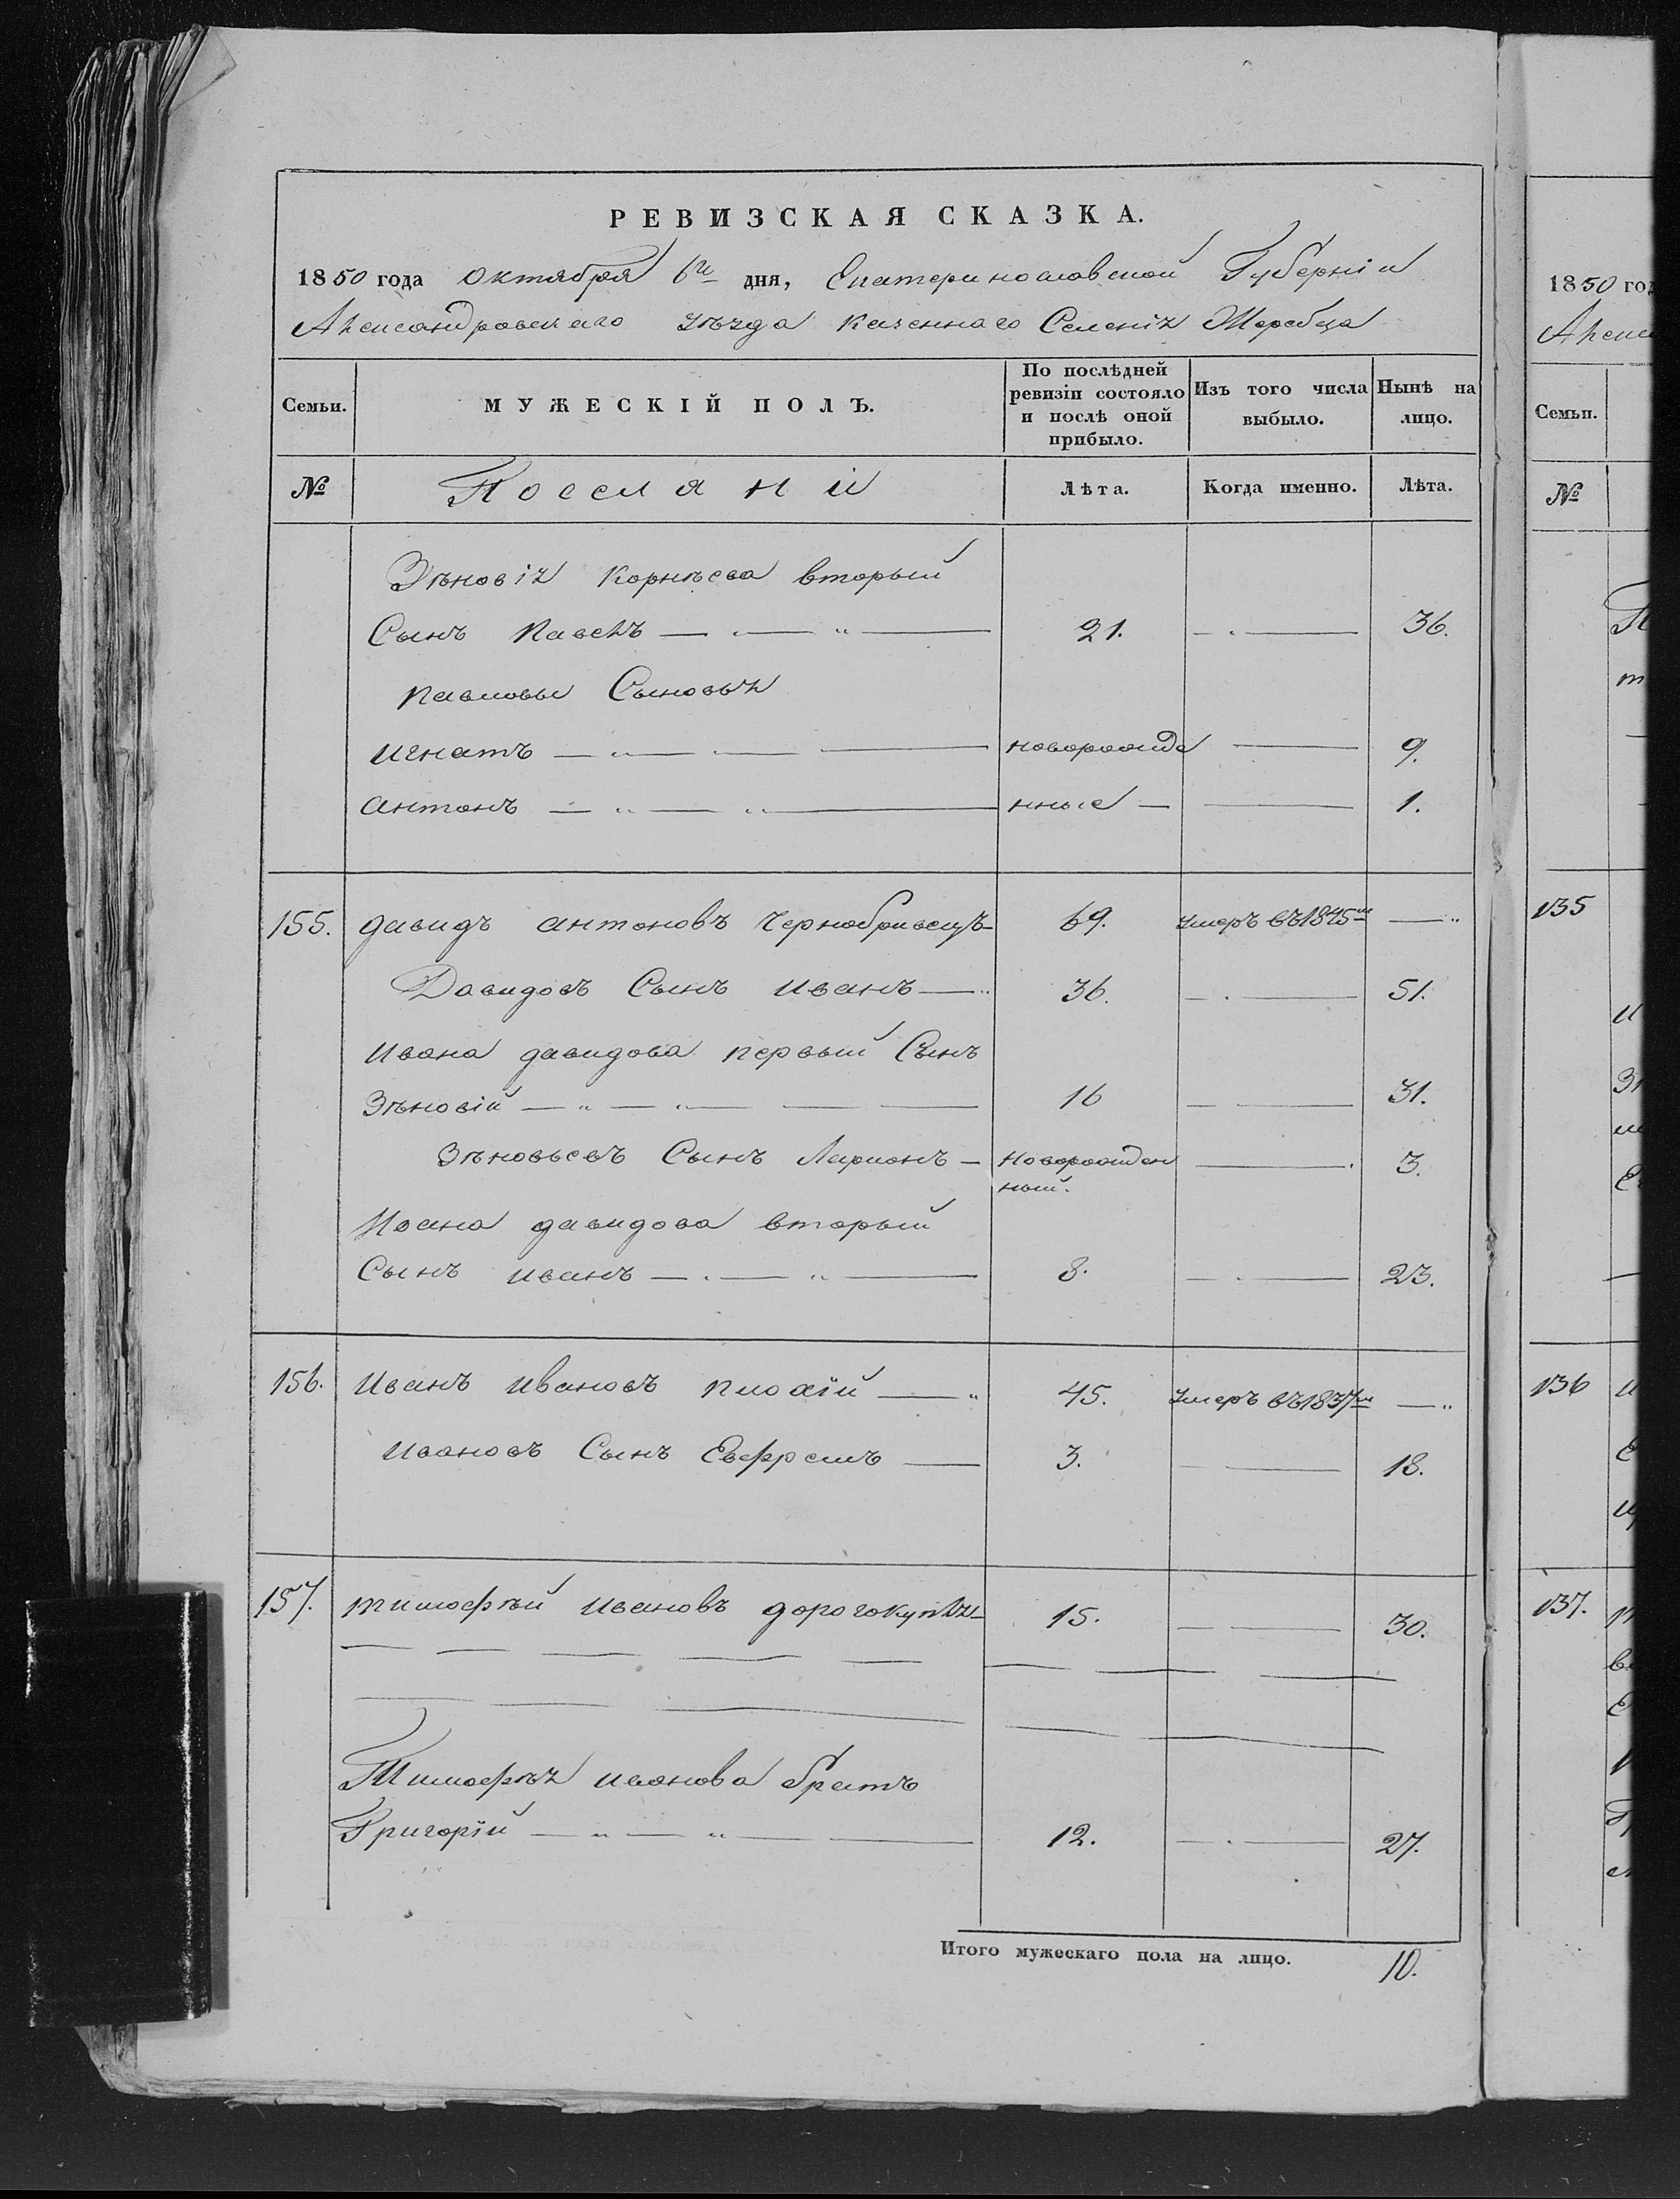 РЕВИЗСКАЯ СКАЗКА.
1850 года Октября 6го дня, Екатеринославской Губерніи
Александровскаго уѣзда казеннаго Селенія Жеребца
Семьи. МУЖЕСКІЙ ПОЛЪ. По послѣдней ревизіи состояло и послѣ оной прибыло. Изъ того числа выбыло. Нынѣ на лицо.
№ Поселяни Лѣта. Когда именно. Лѣта.
Зѣновія Корнѣева вторый
Сынъ Павелъ 21. 36.
Павловы Сыновья
Игнатъ новорожде 9.
Антонъ нные 1.
155. Давидъ Антоновъ Чернобривецъ 69. Умеръ въ 1845м
Давидовъ Сынъ Иванъ 36. 51.
Ивана Давидова первый Сынъ
Зѣновій 16 31.
Зѣновьевъ Сынъ Ларионъ новорожден 3.
ный.
Ивана Давидова вторый
Сынъ Иванъ 8. 23.
156. Иванъ Ивановъ Плохій 45. Умеръ въ 1837м
Ивановъ Сынъ Евфремъ 3. 18.
157. Тимофѣй Ивановъ Дорогокупля 15. 30.
Тимофѣя Иванова братъ
Григорій 12. 27.
Итого мужескаго пола на лицо. 10.
1850 год
Алекс
Семьи.
№
135
136
137.